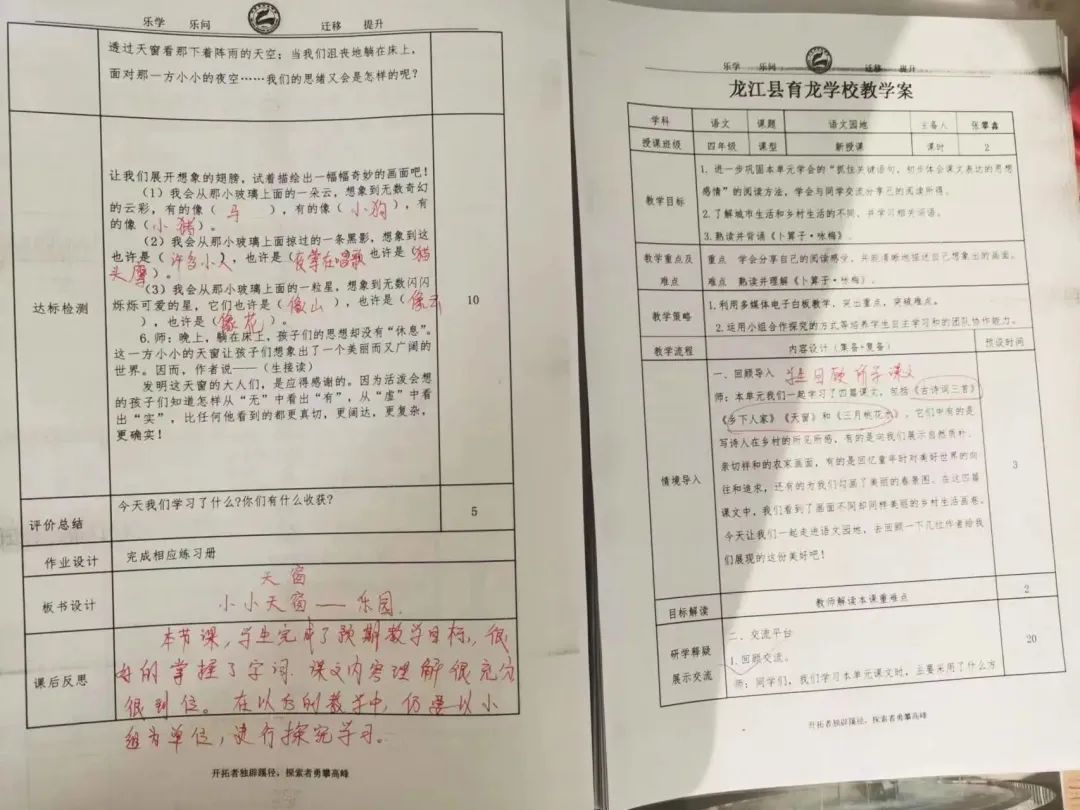 乐学 乐问 迁移 提升
透过天窗看那下着阵雨的天空；当我们沮丧地躺在床上，
面对那一方小小的夜空……我们的思绪又会是怎样的呢？
达标检测
让我们展开想象的翅膀，试着描绘出一幅幅奇妙的画面吧！
（1）我会从那小玻璃上面的一朵云，想象到无数奇幻
的云彩，有的像（ 马 ），有的像（ 小狗 ），有
的像（ 小猪 ）。
（2）我会从那小玻璃上面掠过的一条黑影，想象到这
也许是（ 许多小人 ），也许是（夜莺在唱歌 也许是（猫
头鹰 ）。
（3）我会从那小玻璃上面的一粒星，想象到无数闪闪
烁烁可爱的星，它们也许是（ 像山 ），也许是（ 像云
），也许是（ 像花 ）。
6.师：晚上，躺在床上，孩子们的思想却没有“休息”。
这一方小小的天窗让孩子们想象出了一个美丽而又广阔的
世界。因而，作者说——（生接读）
发明这天窗的大人们，是应得感谢的。因为活泼会想
的孩子们知道怎样从“无”中看出“有”，从“虚”中看
出“实”，比任何他看到的都更真切，更阔达，更复杂，
更确实！
10
评价总结
今天我们学习了什么?你们有什么收获？
5
作业设计
完成相应练习册
板书设计
天窗
小小天窗——乐园
课后反思
本节课，学生完成了预期教学目标，很
好的掌握了字词。课文内容理解很充分
很到位。在以后的教学中，仍要以小
组为单位，进行探究学习。
开拓者独辟蹊径，探索者勇攀高峰
乐学 乐问 迁移 提升
龙江县育龙学校教学案
学科 语文 课题 语文园地 主备人 张攀鑫
授课班级 四年级 课型 新授课 课时 2
教学目标
1.进一步巩固本单元学会的“抓住关键语句，初步体会课文表达的思想
感情”的阅读方法，学会与同学交流分享自己的阅读所得。
2.了解城市生活和乡村生活的不同，并学习相关词语。
3.熟读并背诵《卜算子·咏梅》.
教学重点及
难点
重点 学会分享自己的阅读感受，并能清晰地描述自己想象出的画面。
难点 熟读并理解《卜算子·咏梅》.
教学策略
1.利用多媒体电子白板教学，突出重点，突破难点。
2.运用小组合作探究的方式等培养学生自主学习和的团队协作能力。
教学流程 内容设计（集备+复备） 预设时间
情境导入
一、回顾导入 回顾所学课文
师：本单元我们一起学习了四篇课文，包括《古诗词三首》
《乡下人家》《天窗》和《三月桃花水》。它们中有的是
写诗人在乡村的所见所感，有的是向我们展示自然质朴、
亲切祥和的农家画面，有的是回忆童年时对美好世界的向
往和追求，还有的为我们勾画了美丽的春景图。在这四篇
课文中，我们看到了画面不同却同样美丽的乡村生活画卷。
今天让我们一起走进语文园地，去回顾一下几位作者给我
们展现的这份美好吧！
3
目标解读
教师解读本课重难点
2
研学释疑
展示交流
二、交流平台
1.回顾交流。
师：同学们，我们学习本单元课文时，主要采用了什么方
20
开拓者独辟蹊径，探索者勇攀高峰